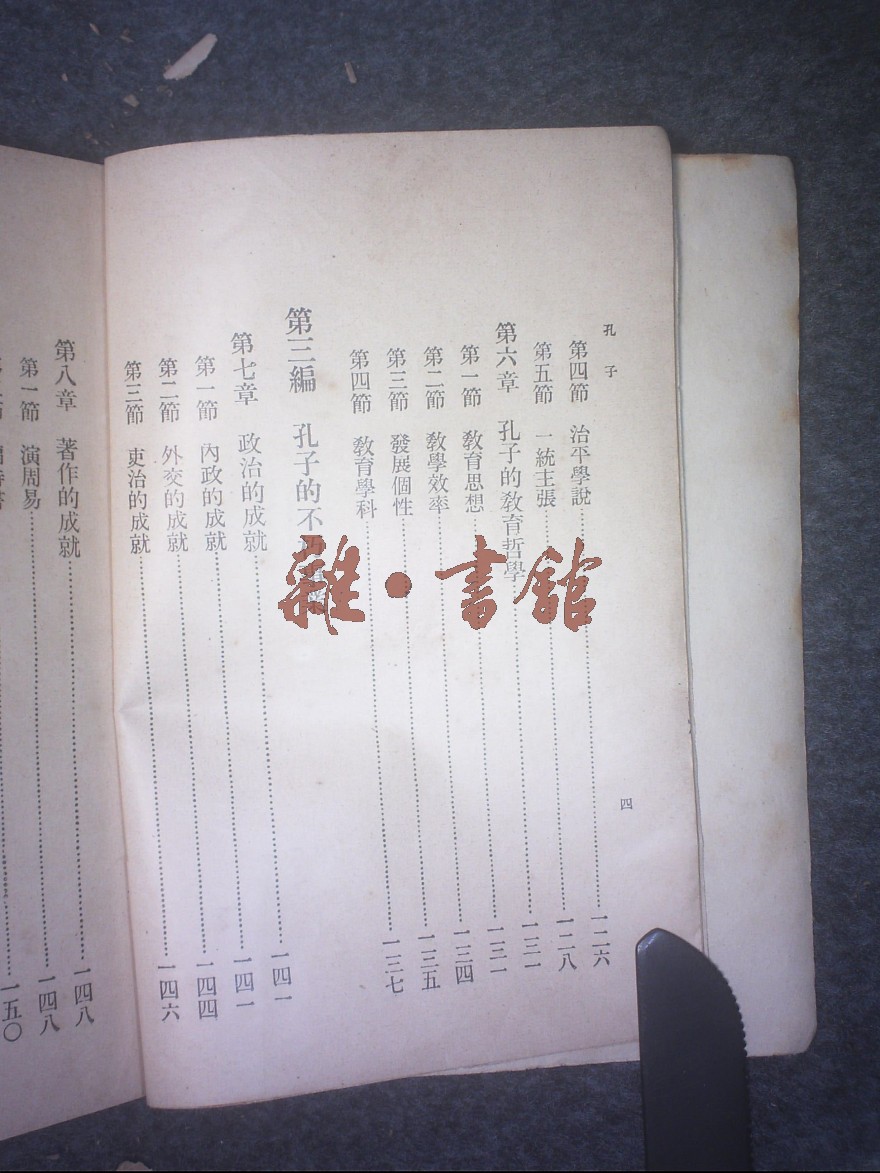 孔子
四
第四節 治平學說……一二六
第五節 一統主張……一二八
第六章 孔子的教育哲學……一三一
第一節 教育思想……一三一
第二節 教學效率……一三四
第三節 發展個性……一三五
第四節 教育學科……一三七
第三編 孔子的不
第七章 政治的成就……一四一
第一節 內政的成就……一四一
第二節 外交的成就……一四四
第三節 吏治的成就……一四六
第八章 著作的成就……一四八
第一節 演周易……一四八
……一五〇
雜·書館